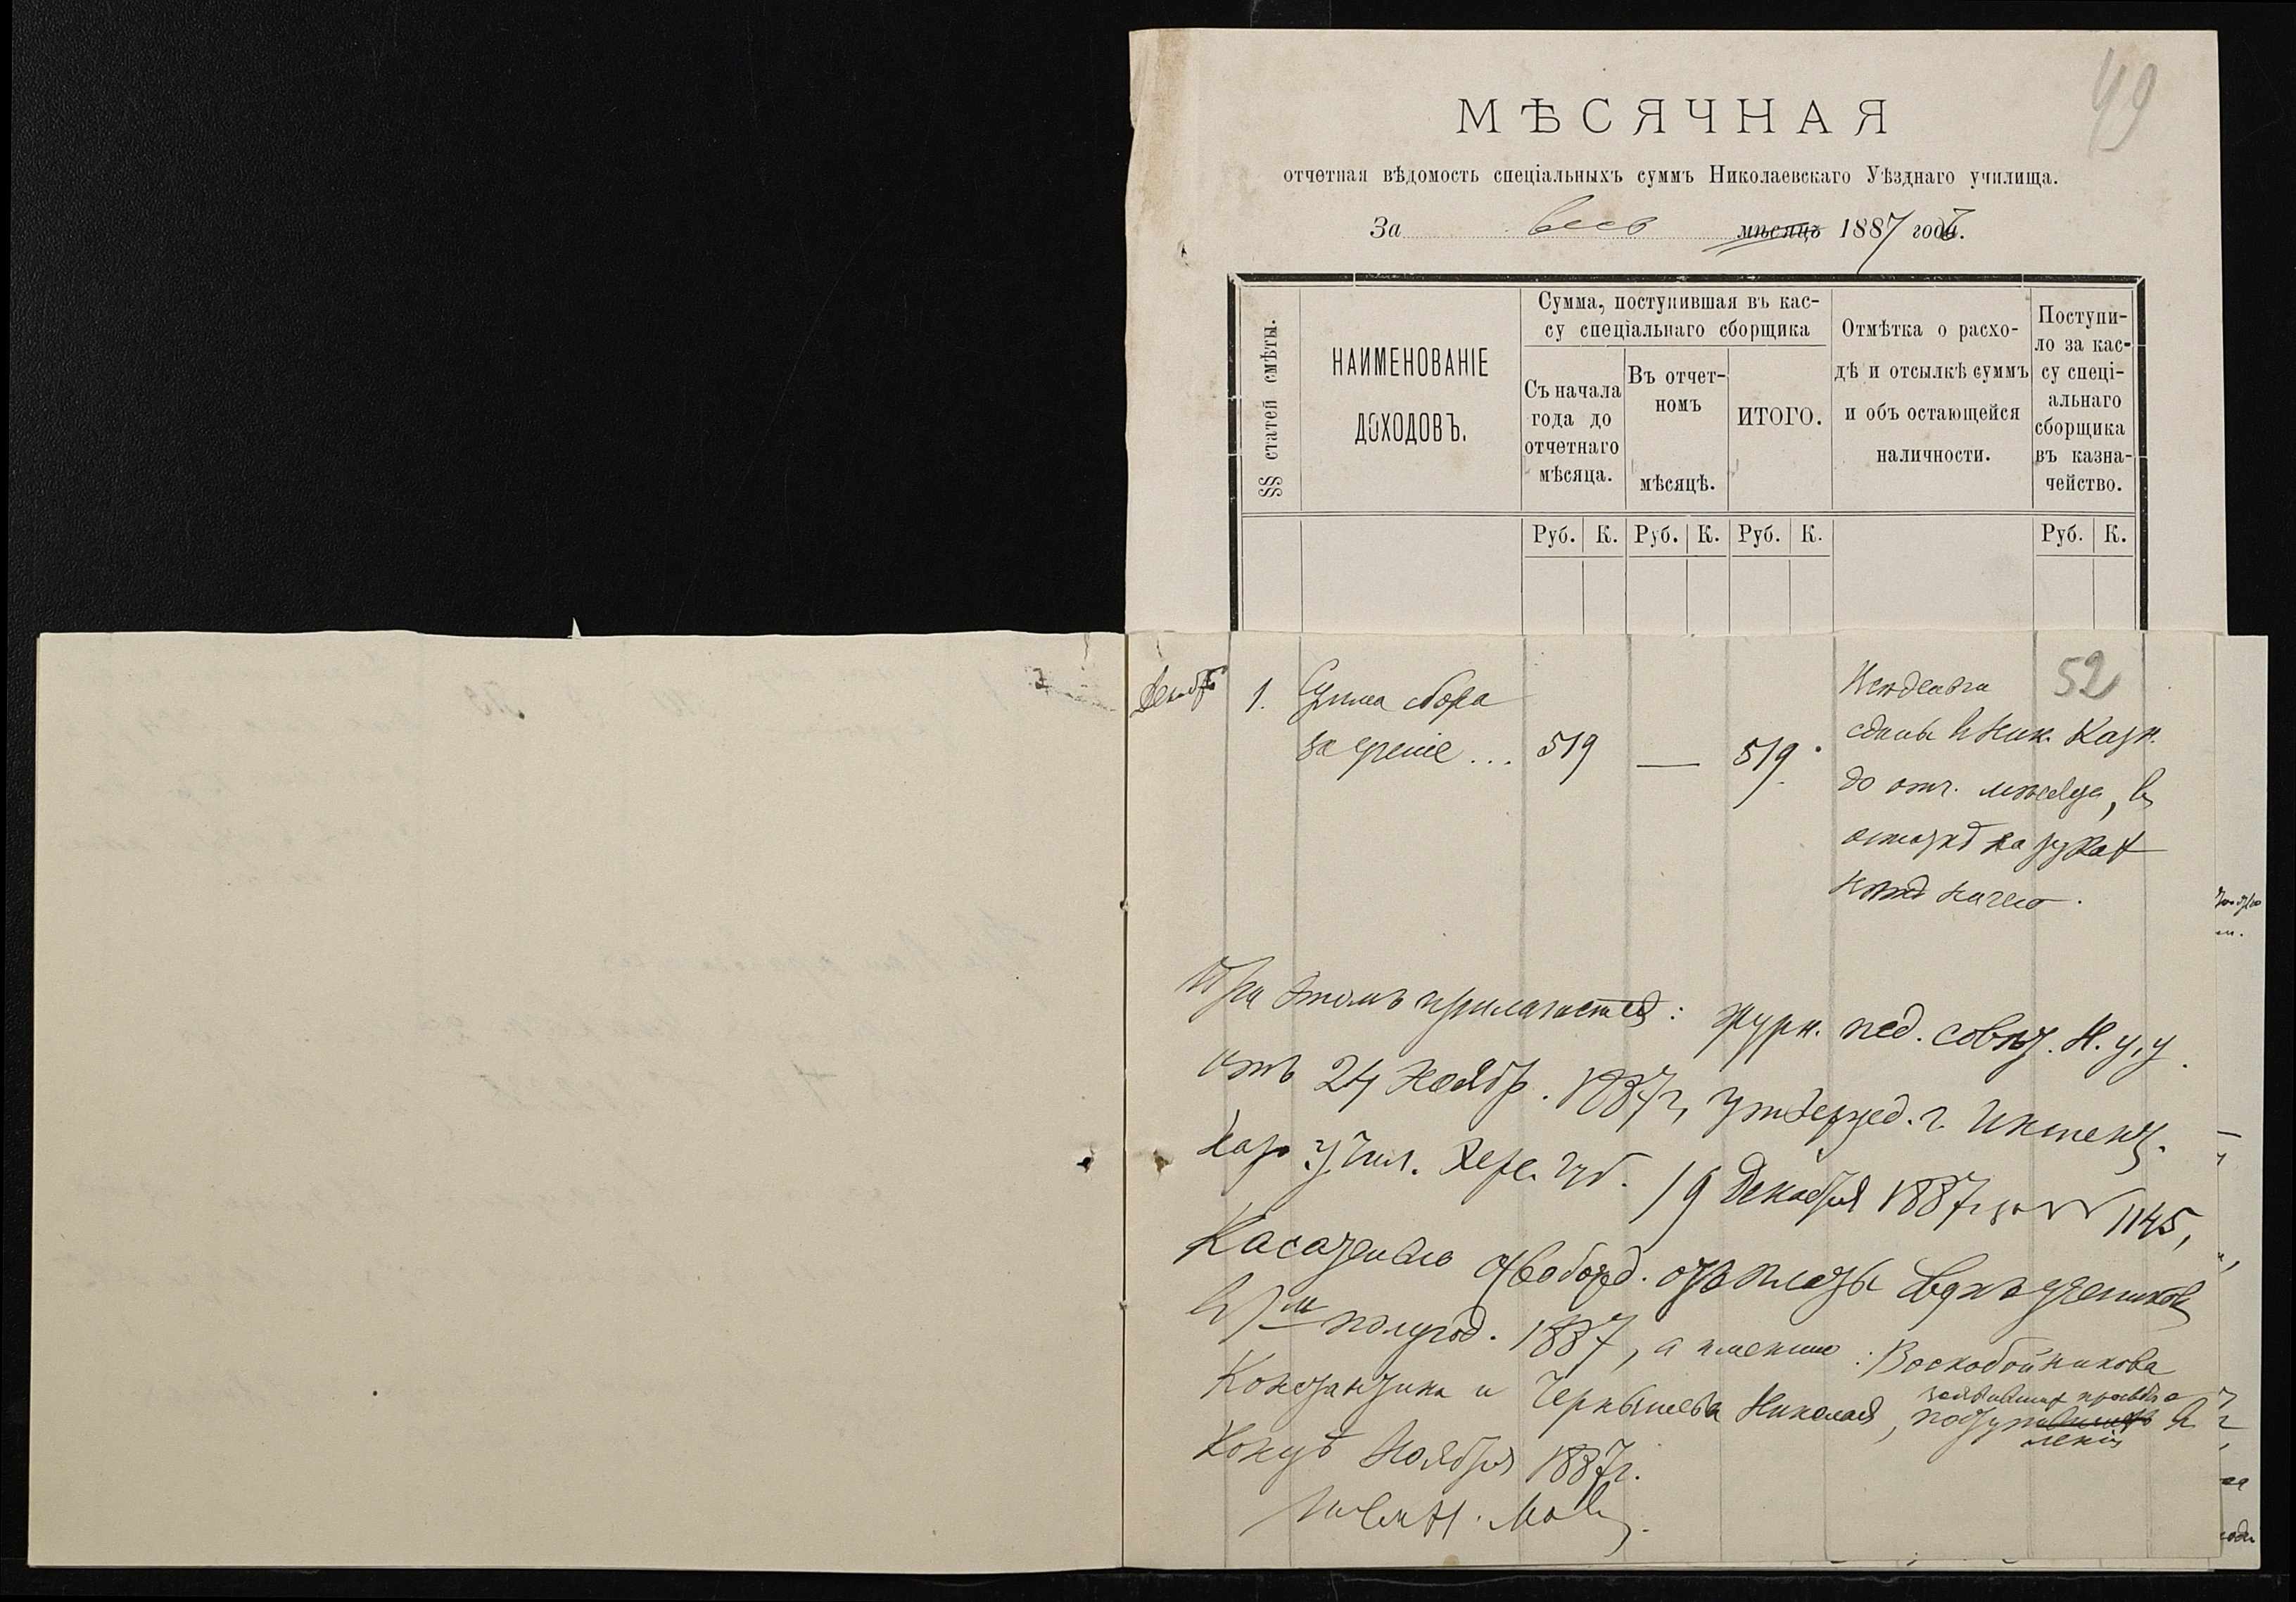 49
МѢСЯЧНАЯ
отчетная вѣдомость спеціальныхъ суммъ Николаевскаго Уѣзднаго училища.
За весь мѣсяцъ 1887 годъ.
§§ статей смѣты.
НАИМЕНОВАНІЕ
ДОХОДОВЪ.
Сумма, поступившая въ кас-
су спеціальнаго сборщика
Съ начала
года до
отчетнаго
мѣсяца.
Въ отчет-
номъ
мѣсяцѣ.
ИТОГО.
Отмѣтка о расхо-
дѣ и отсылкѣ суммъ
и объ остающейся
наличности.
Поступи-
ло за кас-
су спеці-
альнаго
сборщика
въ казна-
чейство.
Руб. К. Руб. К. Руб. К. Руб. К.
52
Декабрь 1. Сумма сбора
за ученіе ... 519 — 519
деньги
сданы в Ник. Казн.
до отч. мѣсяца, въ
остаткѣ на рукахъ
нѣтъ ничего.
При этомъ прилагается: журн. пед. совѣт. Н. у. у.
отъ 24 Ноябр. 1887 г., утвержд. г. Инспект.
нар. Учил. Херс. губ. 19 Декабря 1887 г. за № 1145,
Касательно освобожд. отъ платы двухъ учениковъ
въ полугод. 1887, а именно: Воскобойникова
Константина и Чернышева Николая,
Концѣ Ноября 1887 г.